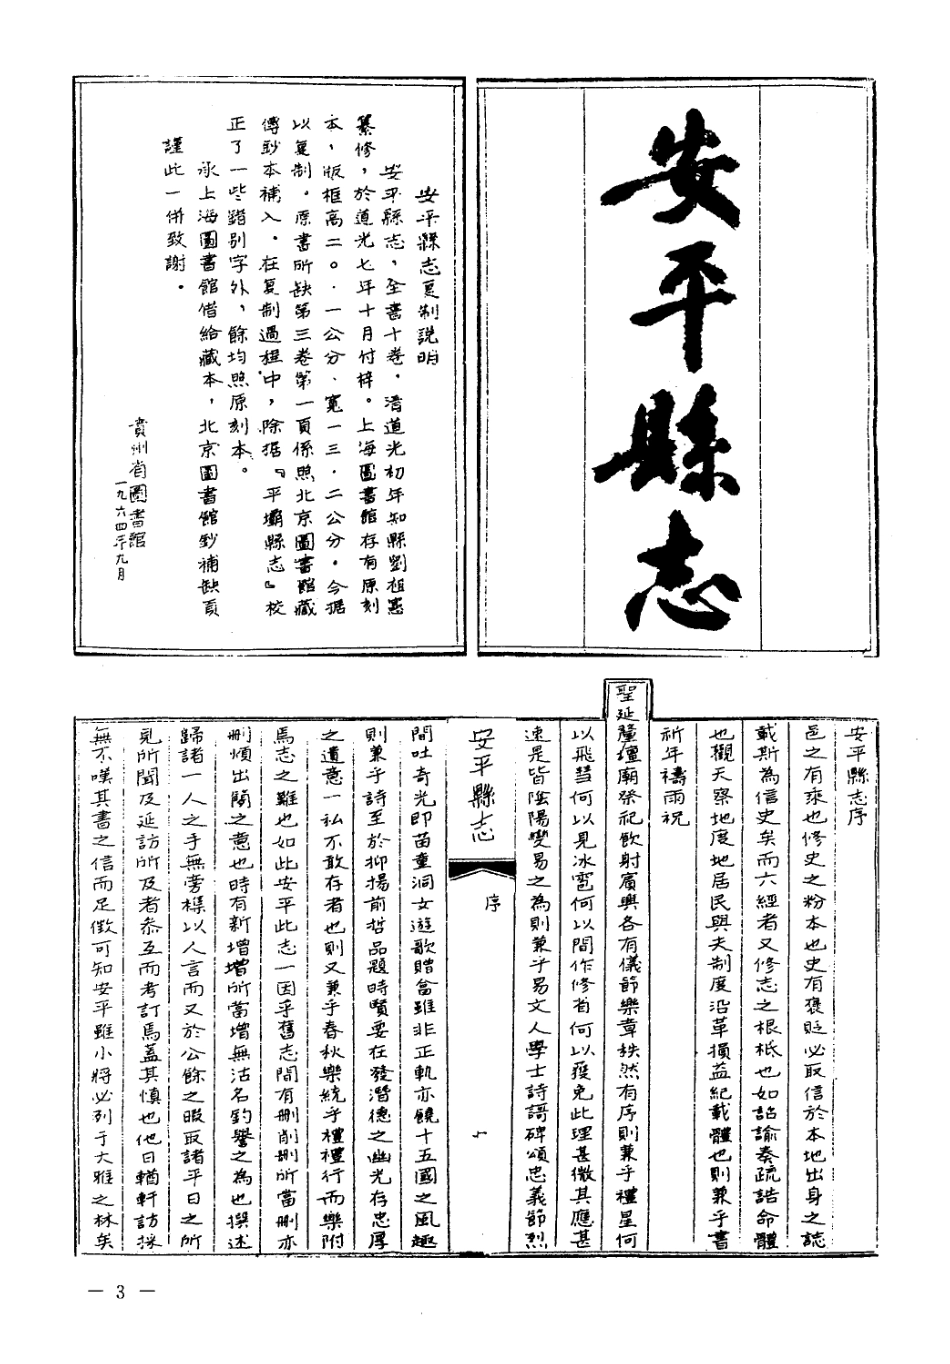 安平縣志
安平縣志复制説明
安平縣志，全書十卷．清道光初年知縣劉祖憲
纂修，於道光七年十月付梓。上海圖書館存有原刻
本，版框高二〇．一公分、寬一三．二公分．今据
以复制．原書所缺第三卷第一頁係照北京圖書館藏
傳鈔本補入．在复制過程中，除据『平壩縣志』校
正了一些錯别字外，餘均照原刻本。
承上海圖書館借給藏本，北京圖書館鈔補缺頁
謹此一併致謝．
貴州省圖書館
一九六四年九月
安平縣志序
邑之有乘也修史之粉本也史有褒貶必取信於本地出身之誌
載斯為信史矣而六經者又修志之根柢也如詔諭奏疏誥命體
也觀天察地度地居民與夫制度沿革損益紀載體也則兼乎書
祈年禱雨祝
聖延釐壇廟祭祀飲射賓興各有儀節樂章秩然有序則兼乎禮星何
以飛彗何以見冰雹何以間作修省何以獲免此理甚微其應甚
速是皆陰陽變易之為則兼乎易文人學士詩語碑頌忠義節烈
安平縣志
序
一
間吐奇光即苗童洞女遊歌贈答雖非正軌亦饒十五國之風趣
則兼乎詩至於抑揚前哲品題時賢要在發潛德之幽光存忠厚
之遺意一私不敢存者也則又兼乎春秋樂統乎禮禮行而樂附
焉志之難也如此安平此志一因乎舊志間有删削删所當删亦
删煩出簡之意也時有新增增所當增無沽名釣譽之為也撰述
歸諸一人之手無旁樣以人言而又於公餘之暇取諸平日之所
見所聞及延訪所及者叅互而考訂焉蓋其慎也他日輶軒訪採
無不嘆其書之信而足徵可知安平雖小將必列于大雅之林矣
— 3 —